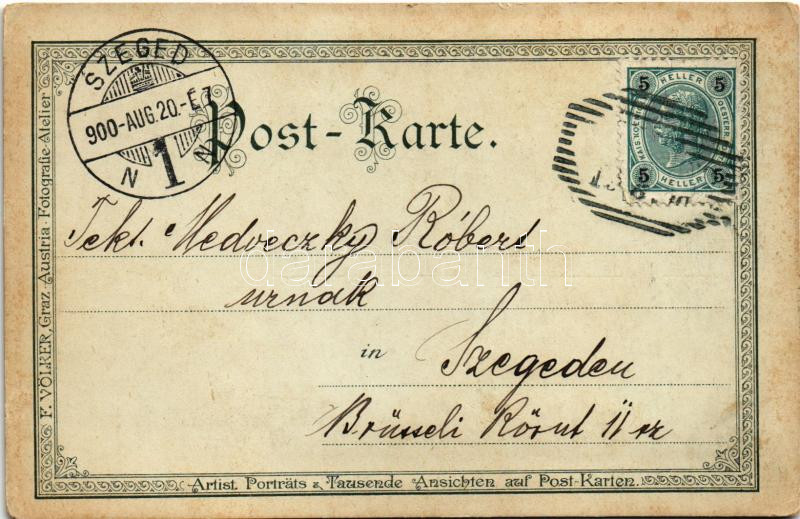 SZEGED
900-AUG.20.-E7
N 1 N
Post-Karte.
5 HELLER 5
5 HELLER 5
Tekt. Medveczky Róbert
urnak
in Szegeden
Brüsseli Körut 11 sz
darabanth
F. VÖLKER, Graz-Austria-Fotografie-Atelier
Artist. Porträts & Tausende Ansichten auf Post-Karten.